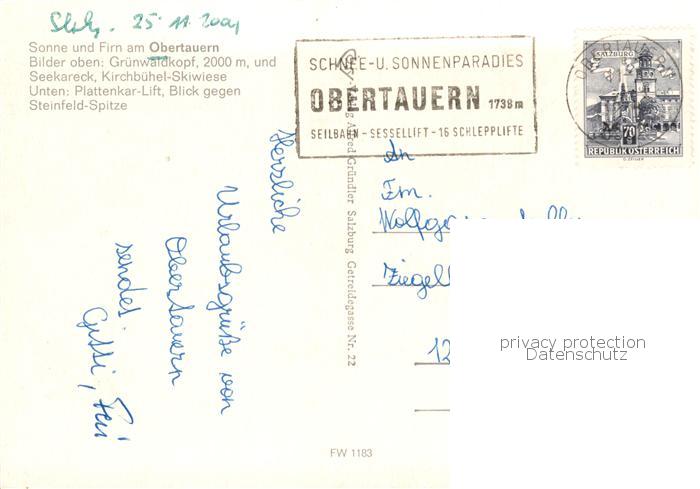 25. 11. 2001
Sonne und Firn am Obertauern
Bilder oben: Grünwaldkopf, 2000 m, und
Seekareck, Kirchbühel-Skiwiese
Unten: Plattenkar-Lift, Blick gegen
Steinfeld-Spitze
SCHNEE-U. SONNENPARADIES
OBERTAUERN 1738m
SEILBAHN-SESSELLIFT-16 SCHLEPPLIFTE
SALZBURG
70
REPUBLIK ÖSTERREICH
OBERTAUERN
Alfred Gründler Salzburg Getreidegasse Nr. 22
Herzliche
Urlaubsgrüße von
Obertauern
sendet
Gitti,
An
Fm.
Ziegel
12
privacy protection
Datenschutz
FW 1183